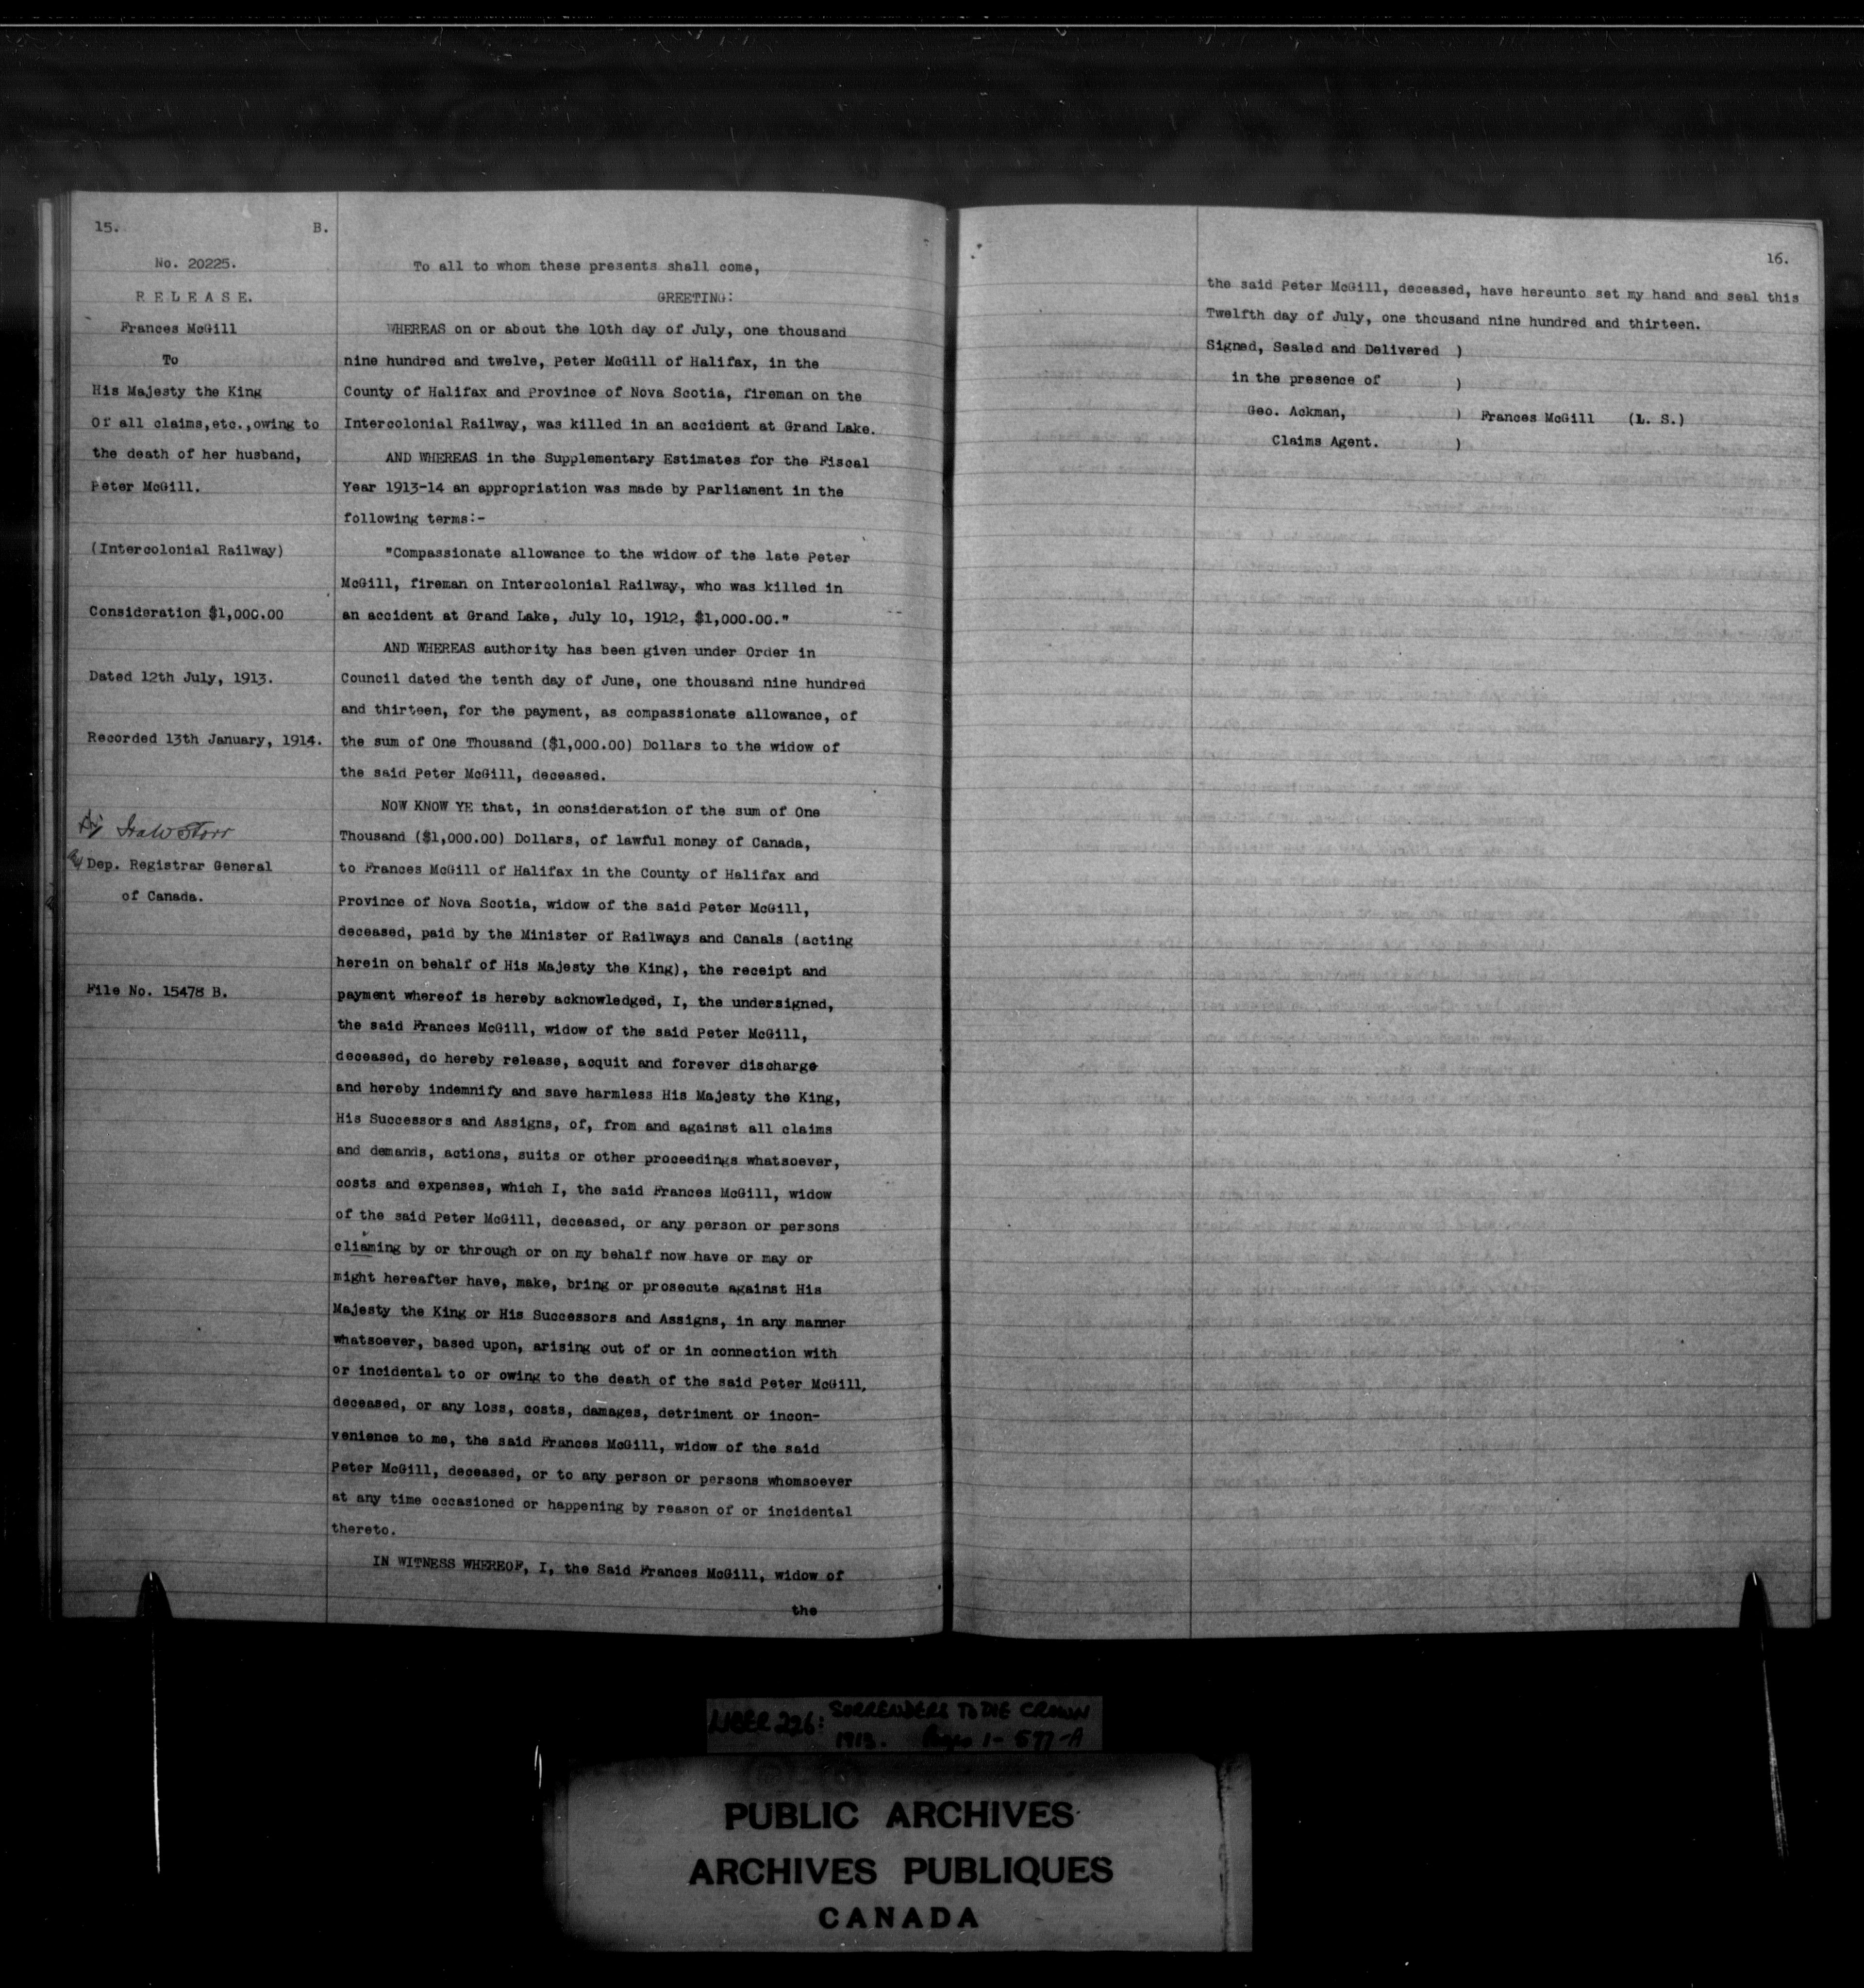 15.
B.
No. 20225.
R E L E A S E.
Frances McGill
To
His Majesty the King
Of all claims,etc.,owing to
the death of her husband,
Peter McGill.
(Intercolonial Railway)
Consideration $1,000.00
Dated 12th July, 1913.
Recorded 13th January, 1914.
Dep. Registrar General
of Canada.
File No. 15478 B.
To all to whom these presents shall come,
GREETING:
WHEREAS on or about the 10th day of July, one thousand
nine hundred and twelve, Peter McGill of Halifax, in the
County of Halifax and Province of Nova Scotia, fireman on the
Intercolonial Railway, was killed in an accident at Grand Lake.
AND WHEREAS in the Supplementary Estimates for the Fiscal
Year 1913-14 an appropriation was made by Parliament in the
following terms:-
"Compassionate allowance to the widow of the late Peter
McGill, fireman on Intercolonial Railway, who was killed in
an accident at Grand Lake, July 10, 1912, $1,000.00."
AND WHEREAS authority has been given under Order in
Council dated the tenth day of June, one thousand nine hundred
and thirteen, for the payment, as compassionate allowance, of
the sum of One Thousand ($1,000.00) Dollars to the widow of
the said Peter McGill, deceased.
NOW KNOW YE that, in consideration of the sum of One
Thousand ($1,000.00) Dollars, of lawful money of Canada,
to Frances McGill of Halifax in the County of Halifax and
Province of Nova Scotia, widow of the said Peter McGill,
deceased, paid by the Minister of Railways and Canals (acting
herein on behalf of His Majesty the King), the receipt and
payment whereof is hereby acknowledged, I, the undersigned,
the said Frances McGill, widow of the said Peter McGill,
deceased, do hereby release, acquit and forever discharge
and hereby indemnify and save harmless His Majesty the King,
His Successors and Assigns, of, from and against all claims
and demands, actions, suits or other proceedings whatsoever,
costs and expenses, which I, the said Frances McGill, widow
of the said Peter McGill, deceased, or any person or persons
cliaming by or through or on my behalf now have or may or
might hereafter have, make, bring or prosecute against His
Majesty the King or His Successors and Assigns, in any manner
whatsoever, based upon, arising out of or in connection with
or incidental to or owing to the death of the said Peter McGill,
deceased, or any loss, costs, damages, detriment or incon-
venience to me, the said Frances McGill, widow of the said
Peter McGill, deceased, or to any person or persons whomsoever
at any time occasioned or happening by reason of or incidental
thereto.
IN WITNESS WHEREOF, I, the Said Frances McGill, widow of
the
16.
the said Peter McGill, deceased, have hereunto set my hand and seal this
Twelfth day of July, one thousand nine hundred and thirteen.
Signed, Sealed and Delivered )
in the presence of )
Geo. Ackman, ) Frances McGill (L. S.)
Claims Agent. )
LIBER 226: SURRENDERS TO THE CROWN
1913. Pages 1-577-A
PUBLIC ARCHIVES
ARCHIVES PUBLIQUES
CANADA